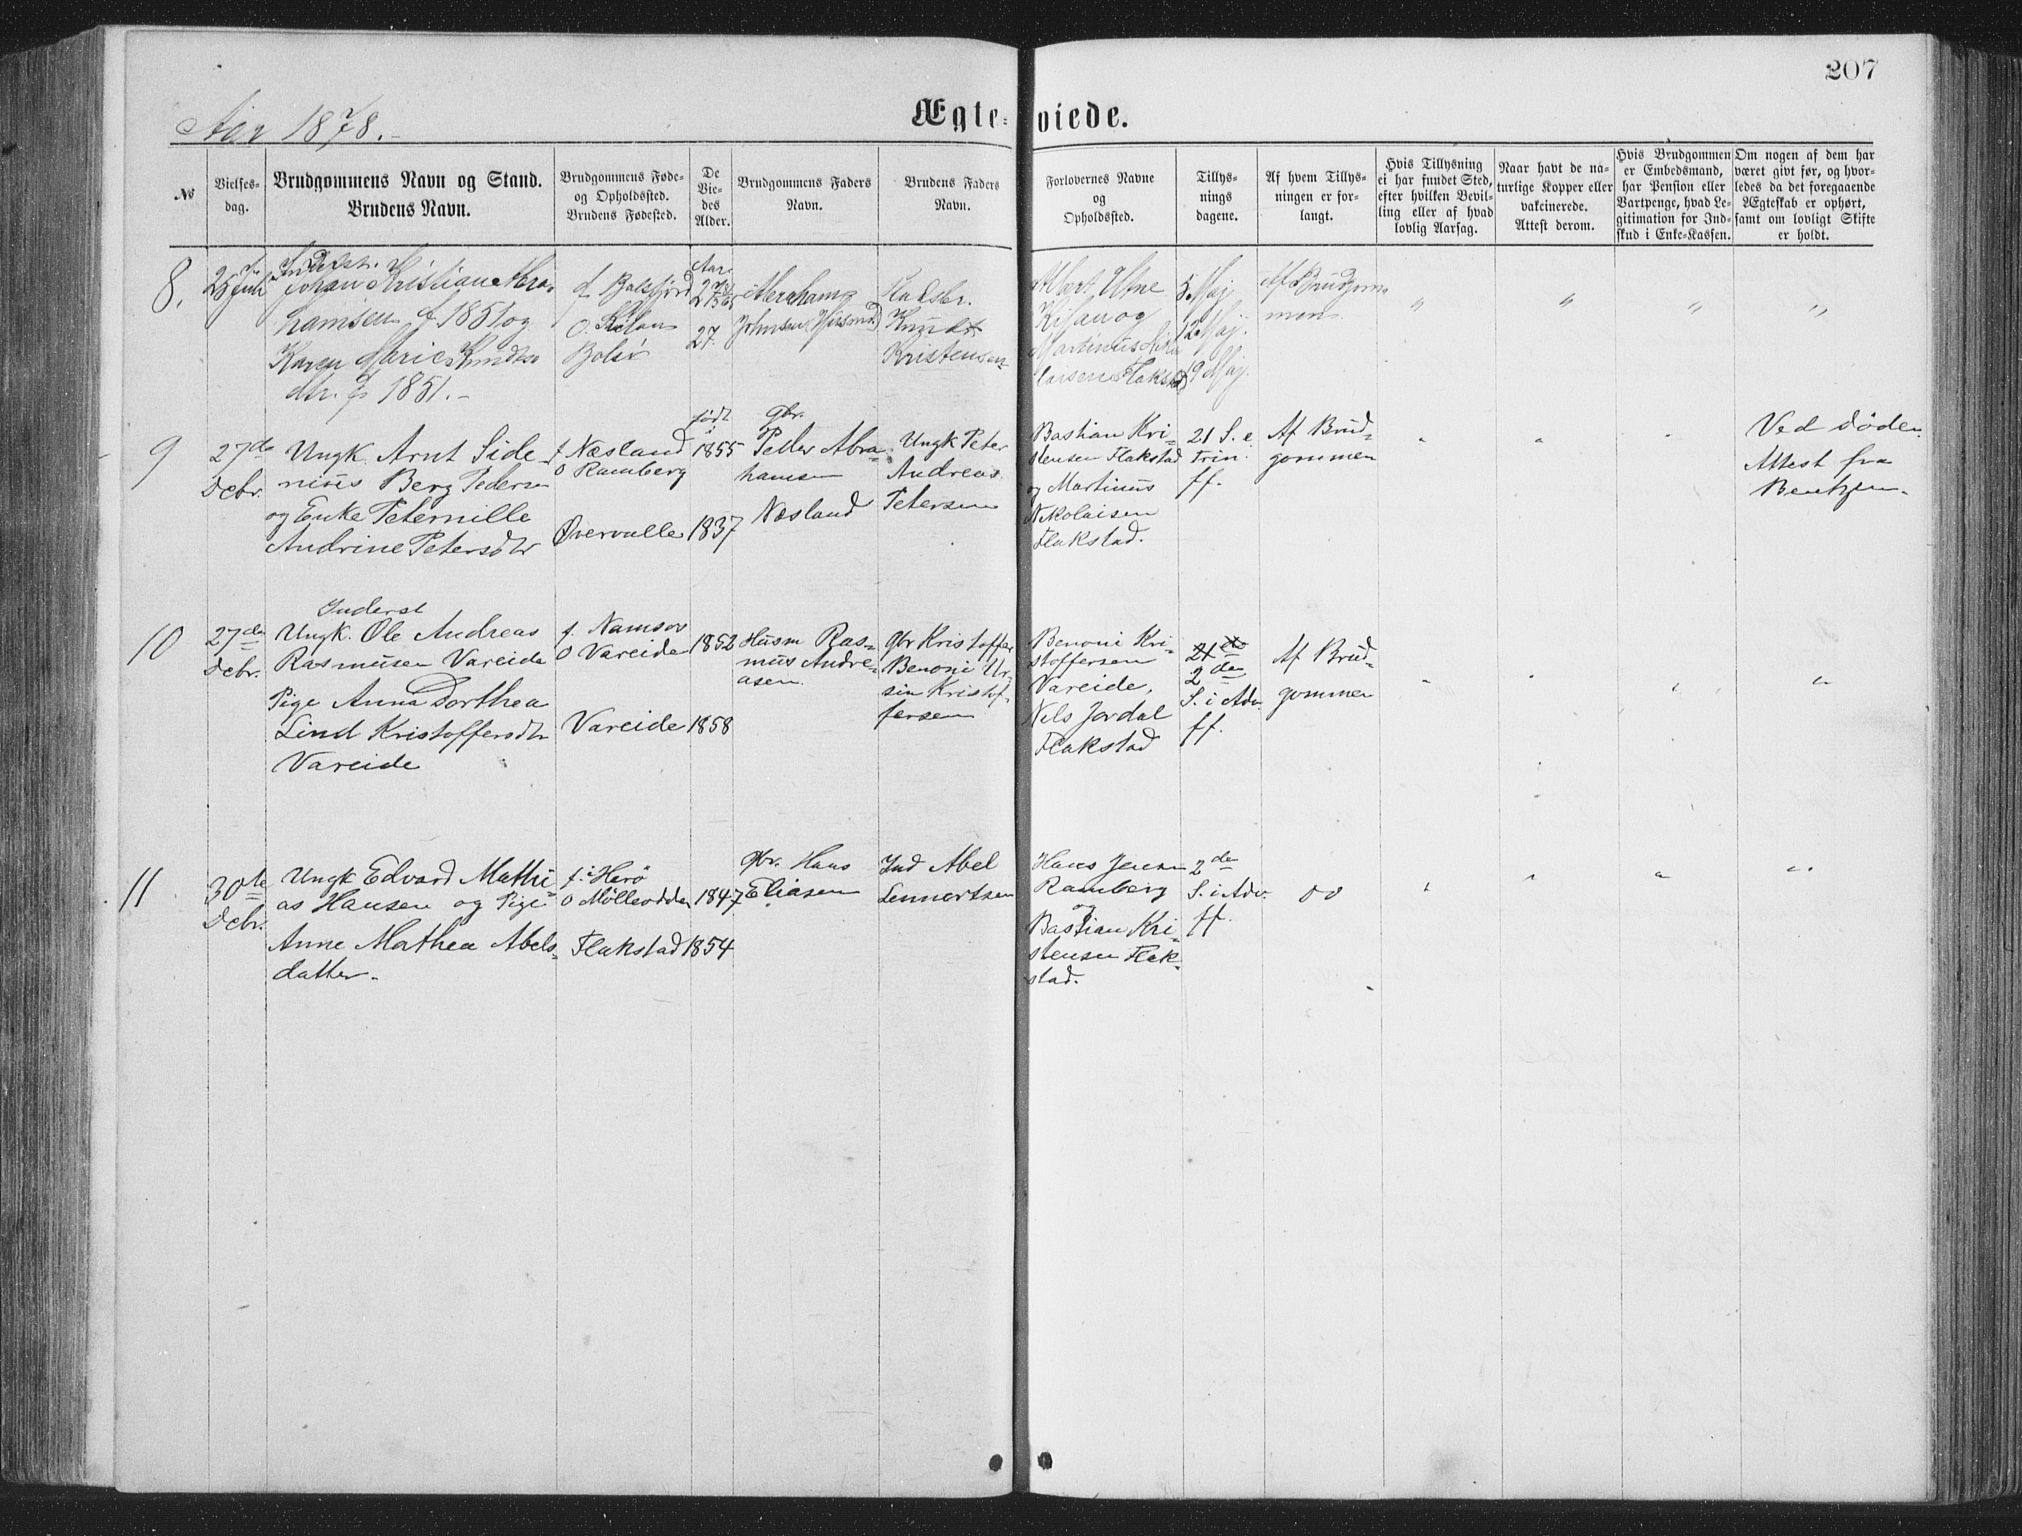 207
Aar 1878.
Ægteviede.
No
Vielses-
dag.
Brudgommens Navn og Stand.
Brudens Navn.
Brudgommens Føde-
og Opholdssted.
Brudens Fødested.
De
Vie-
des
Alder.
Brudgommens Faders
Navn.
Brudens Faders
Navn.
Forlovernes Navne
og
Opholdssted.
Tillys-
nings
dagene.
Af hvem Tillys-
ningen er for-
langt.
Hvis Tillysning
ei har fundet Sted,
efter hvilken Bevil-
ling eller af hvad
lovlig Aarsag.
Naar havt de na-
turlige Kopper eller
vakcinerede.
Attest derom.
Hvis Brudgommen
er Embedsmand,
har Pension eller
Vartpenge, hvad Le-
gitimation for Ind-
skud i Enke-Kassen.
Om nogen af dem har
været givt før, og hvor-
ledes da det foregaaende
Ægteskab er ophørt,
samt om lovligt Skifte
er holdt.
8.
Johan Kristian Abra-
hamsen f 1851 og
Karen Marie Knudts-
dtr. f. 1851.-
f Balsfjord
o. Kilan
Bolsö
Aar
27
27
Abraham
Johnsen
Knudt
Kristensen
Albert
Kilan og
Martinus Niko
laisen Flakstad
5 Maj
12 Maj.
19 Maj.
Af Brudgom-
men
" " " "
9
27de
Debr.
Ungk. Arnt Side-
nius Berg Pedersen
og Enke Peternille
Andrine Petersdtr
f Næsland
o Ramberg
Øvervalle
født
i
1855
1837
Gbr.
Peder Abra-
hamsen
Næsland
Ungk Peter
Andreas
Petersen
Bastian Kri-
stensen Flakstad
og Martinus
Nikolaisen
Flakstad.
21 S. e.
Trin.
ff.
Af Brud-
gommen
" " "
Ved Døden
Attest fra
Bentzen.
10
27de
Debr.
Inderst
Ungk. Ole Andreas
Rasmusen Vareide
Pige Anna Dorthea
Lind Kristoffersdtr
Vareide
f. Namsos
o Vareide
Vareide
1852
1858
Husm Ras-
mus Andre-
asen.
Gbr Kristoffer
Benoni Ur-
sin Kristof-
fersen
Benoni Kri-
stoffersen
Vareide,
Nils Jordal
Flakstad
2den
S. i Adv.
ff.
Af Brud-
gommen
" " " "
11
30te
Debr.
Ungk Edvard Mathi-
as Hansen og Pige
Anne Mathea Abels-
datter.
f. Herö
o Mölleodden
Flakstad
1847
1854
Gbr. Hans
Eliasen
Ind Abel
Lennertsen
Hans Jensen
Ramberg
og
Bastian Kri-
stensen Flak-
stad.
2den
S. i Adv.
ff.
" " " "